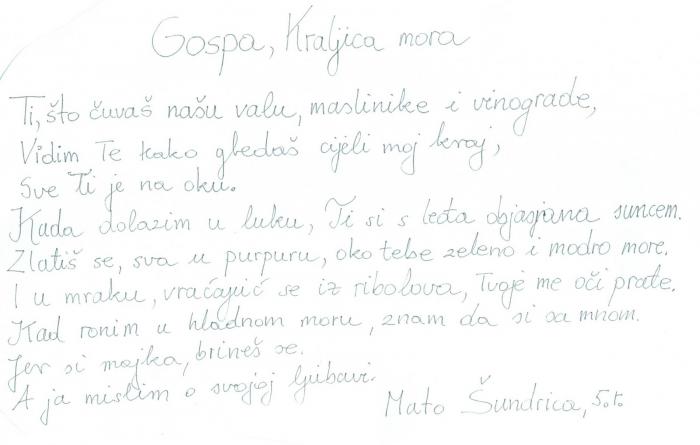 Gospa, Kraljica mora
Ti, što čuvaš našu valu, maslinike i vinograde,
Vidim Te kako gledaš cijeli moj kraj,
Sve Ti je na oku.
Kada dolazim u luku, Ti si s leđa obasjana suncem.
Zlatiš se, sva u purpuru, oko tebe zeleno i modro more.
I u mraku, vraćajuić se iz ribolova, Tvoje me oči prate.
Kad ronim u hladnom moru, znam da si sa mnom.
Jer si majka, brineš se.
A ja mislim o svojoj ljubavi.
Mato Šundrica, 5.r.